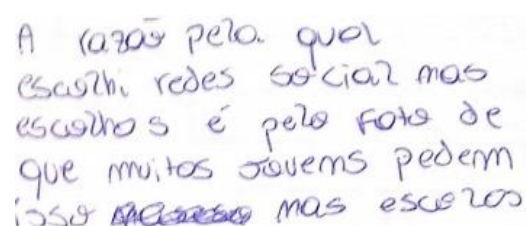 A razão pela qual
escolhi redes social mas
escolhos é pelo foto de
que muitos jovems pedem
isso mas escolos